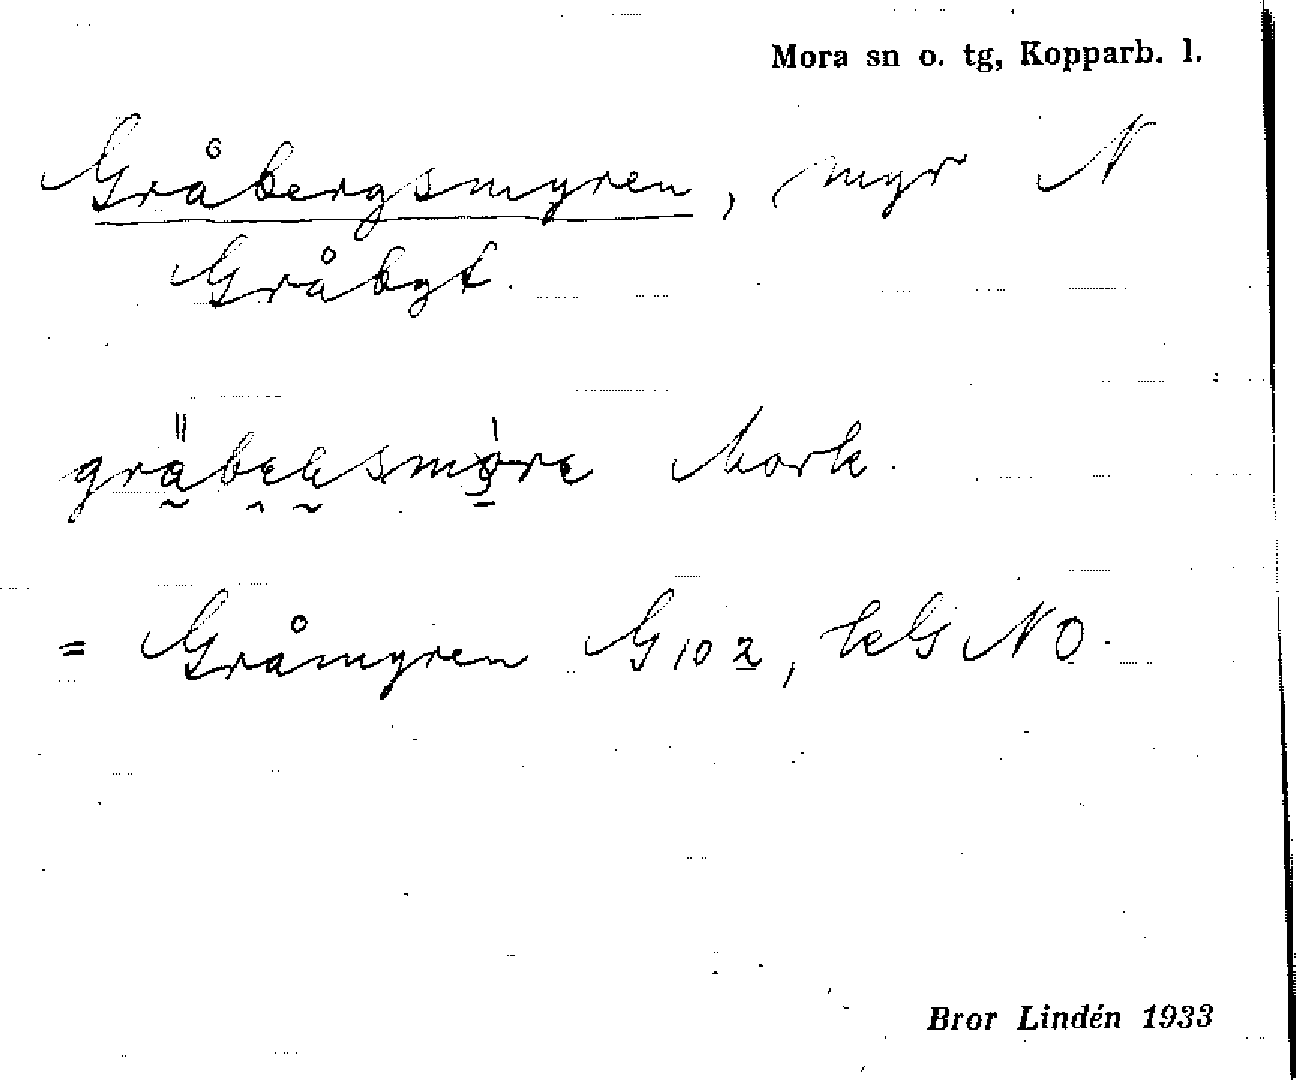 Mora sn o. tg, Kopparb. l.
Gråbergsmyren, myr N
Gråbgt.
Mork.
= Gråmyren G 10 2, kG NO.
Bror Lindén 1933